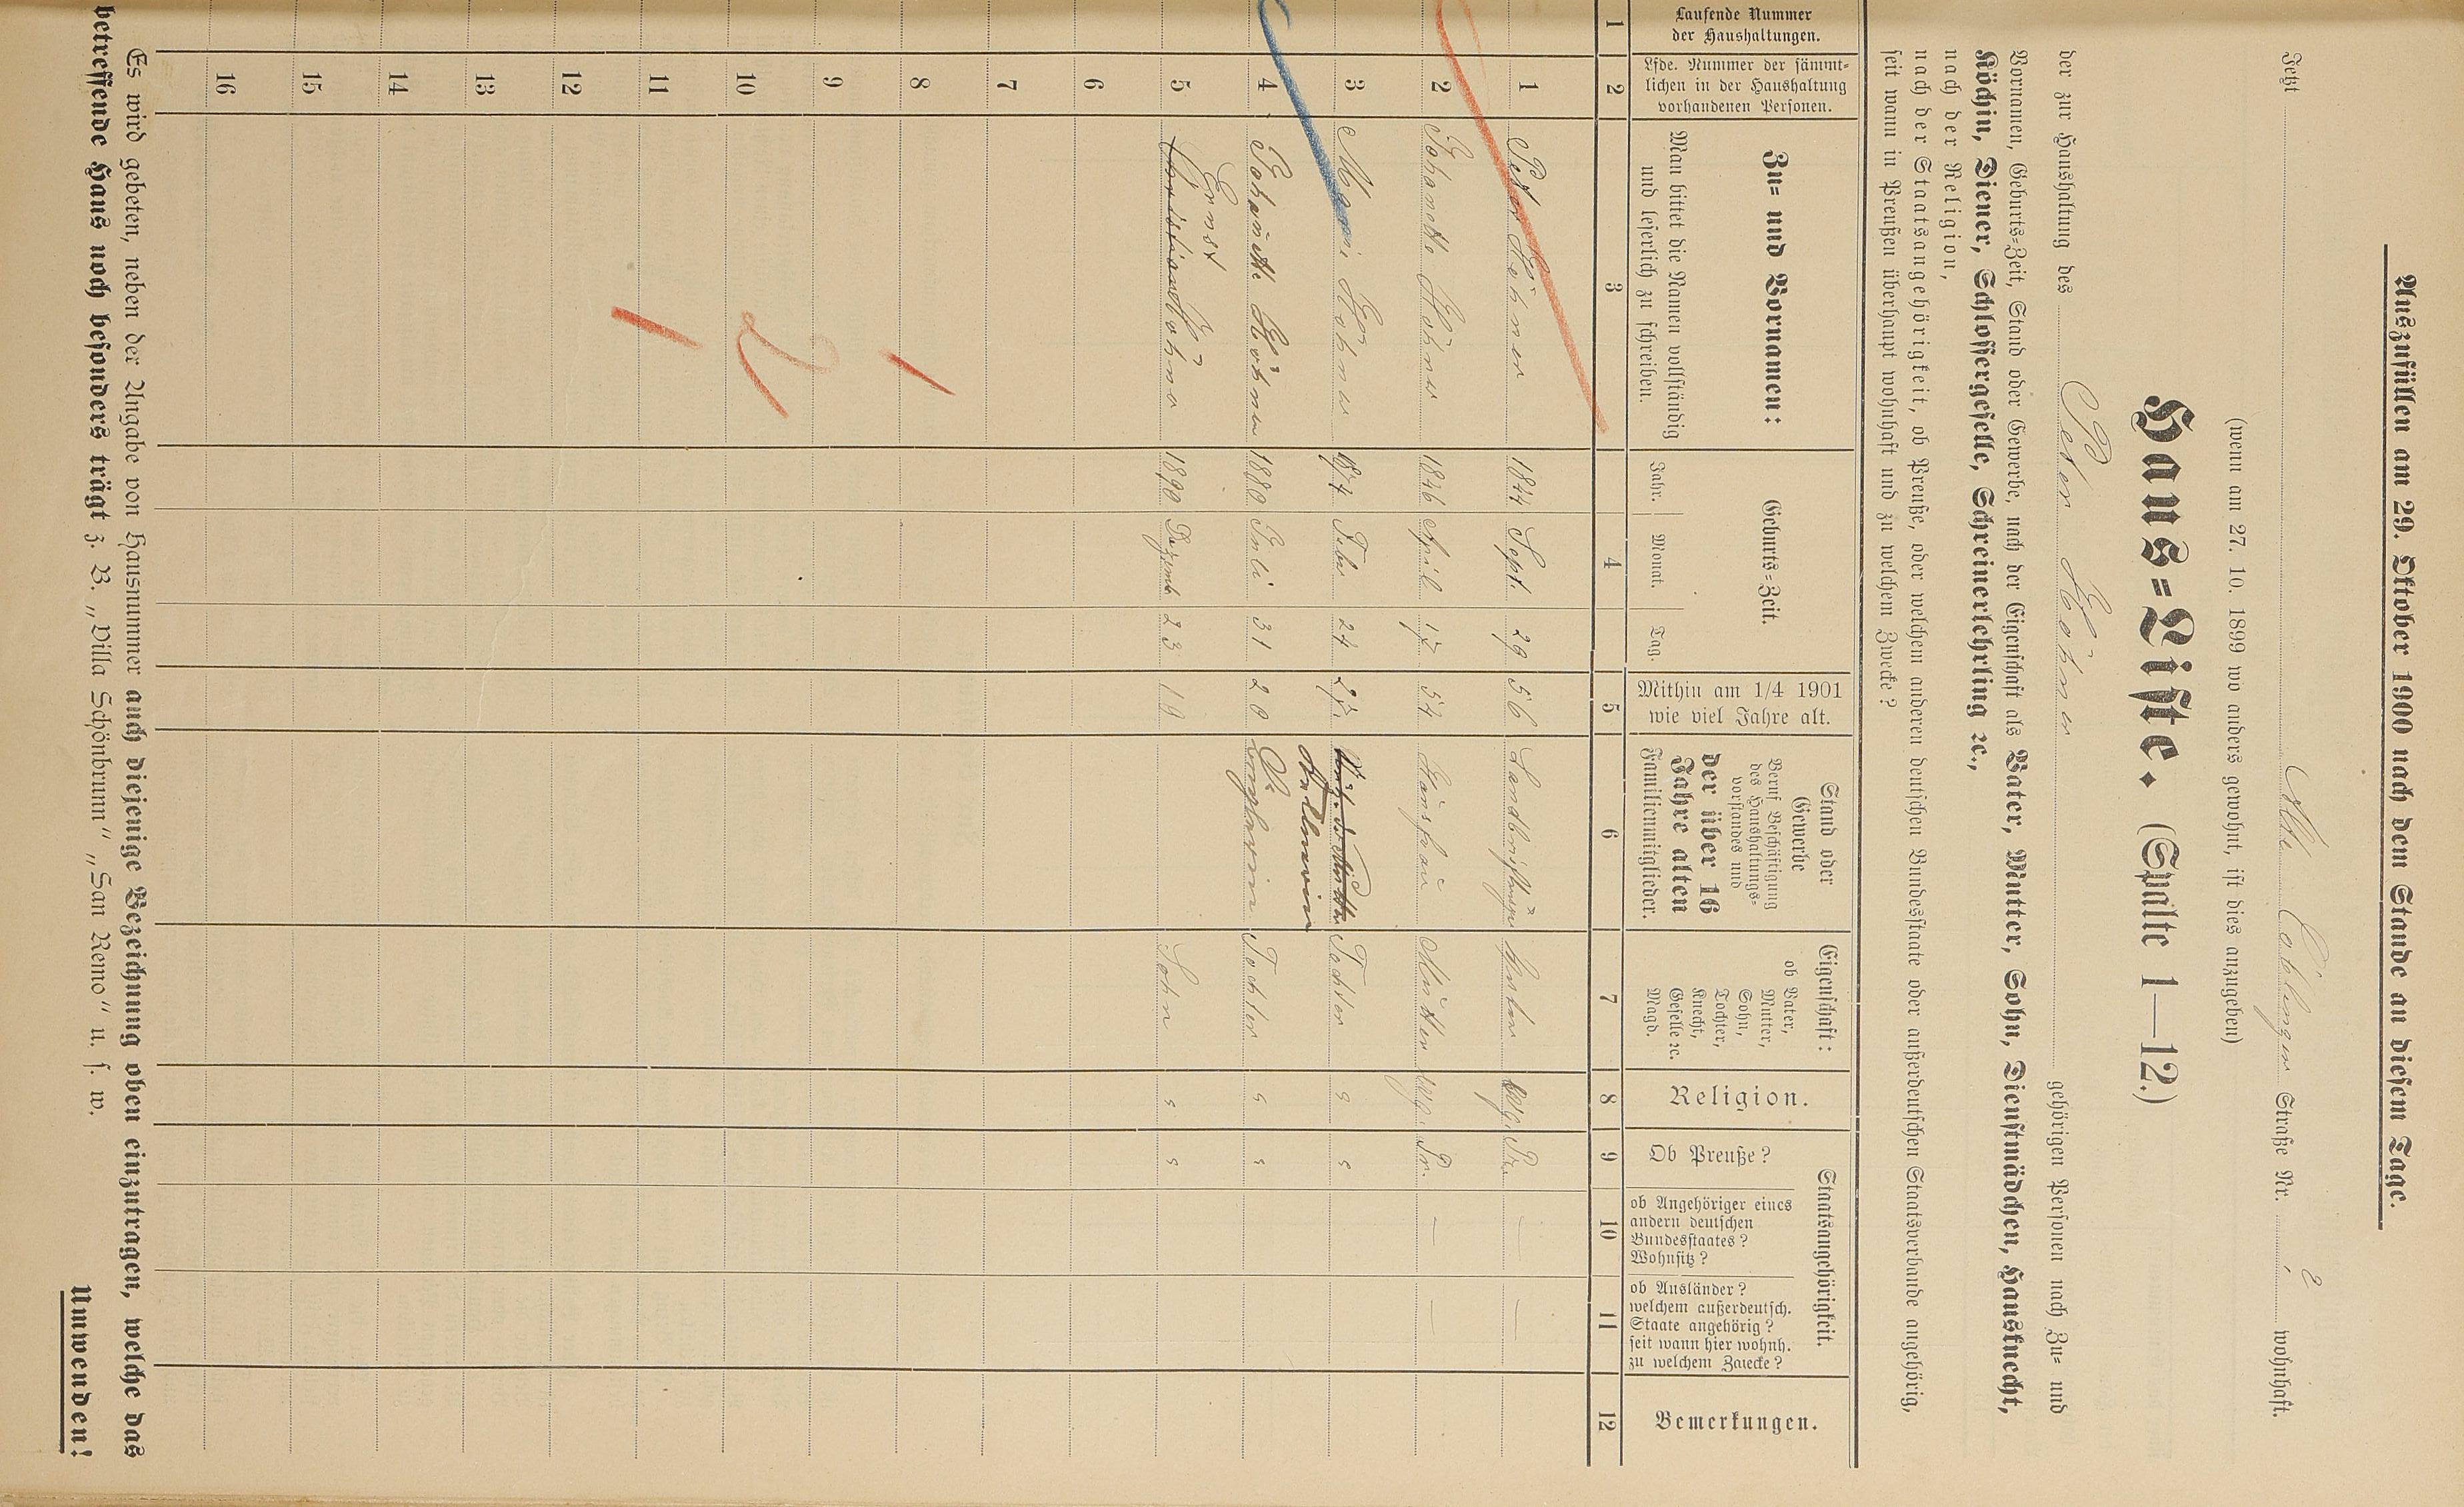 Auszufüllen am 29. Oktober 1900 nach dem Stande an diesem Tage.
Jetzt Alte Coblenzer Straße Nr. wohnhaft.
(wenn am 27. 10. 1899 wo anders gewohnt, ist dies anzugeben)
Haus=Liste. (Spalte 1—12.)
der zur Haushaltung des Peter Höhner gehörigen Personen nach Zu= und
Vornamen, Geburts=Zeit, Stand oder Gewerbe, nach der Eigenschaft als Vater, Mutter, Sohn, Dienstmädchen, Hausknecht,
Köchin, Diener, Schlossergeselle, Schreinerlehrling ꝛc.,
nach der Religion,
nach der Staatsangehörigkeit, ob Preuße, oder welchem anderen deutschen Bundesstaate oder außerdeutschen Staatsverbande angehörig,
seit wann in Preußen überhaupt wohnhaft und zu welchem Zwecke?
Laufende Nummer
der Haushaltungen.
Lfde. Nummer der sämmt=
lichen in der Haushaltung
vorhandenen Personen.
Zu= und Vornamen:
Man bittet die Namen vollständig
und leserlich zu schreiben.
Geburts=Zeit.
Jahr. Monat. Tag.
Mithin am 1/4 1901
wie viel Jahre alt.
Stand oder
Gewerbe
Beruf Beschäftigung
des Haushaltungs=
vorstandes und
der über 16
Jahre alten
Familienmitglieder.
Eigenschaft:
ob Vater,
Mutter,
Sohn,
Tochter,
Knecht,
Geselle ꝛc.
Magd.
Religion.
Staatsangehörigkeit.
Ob Preuße?
ob Angehöriger eines
andern deutschen
Bundesstaates?
Wohnsitz?
ob Ausländer?
welchem außerdeutsch.
Staate angehörig?
seit wann hier wohnh.
zu welchem Zwecke?
Bemerkungen.
1 2 3 4 5 6 7 8 9 10 11 12
1 Peter Höhner 1844 Sept. 29 56 Pr. — —
2 Johanette Höhner 1846 April 17 54 Hausfrau Mutter Pr. — —
3 Höhner 1874 Febr 24 27 Tochter " "
4 Johanette Höhner 1880 Juli 31 20 Büglerin Tochter " "
Ernst
5 Christian Höhner 1890 Dezemb 23 10 Sohn " "
6
7
8
9
10
11
12
13
14
15
16
1
2
1
Es wird gebeten, neben der Angabe von Hausnummer auch diejenige Bezeichnung oben einzutragen, welche das
betreffende Haus noch besonders trägt z. B. „Villa Schönbrunn" „San Remo" u. s. w.
Umwenden!